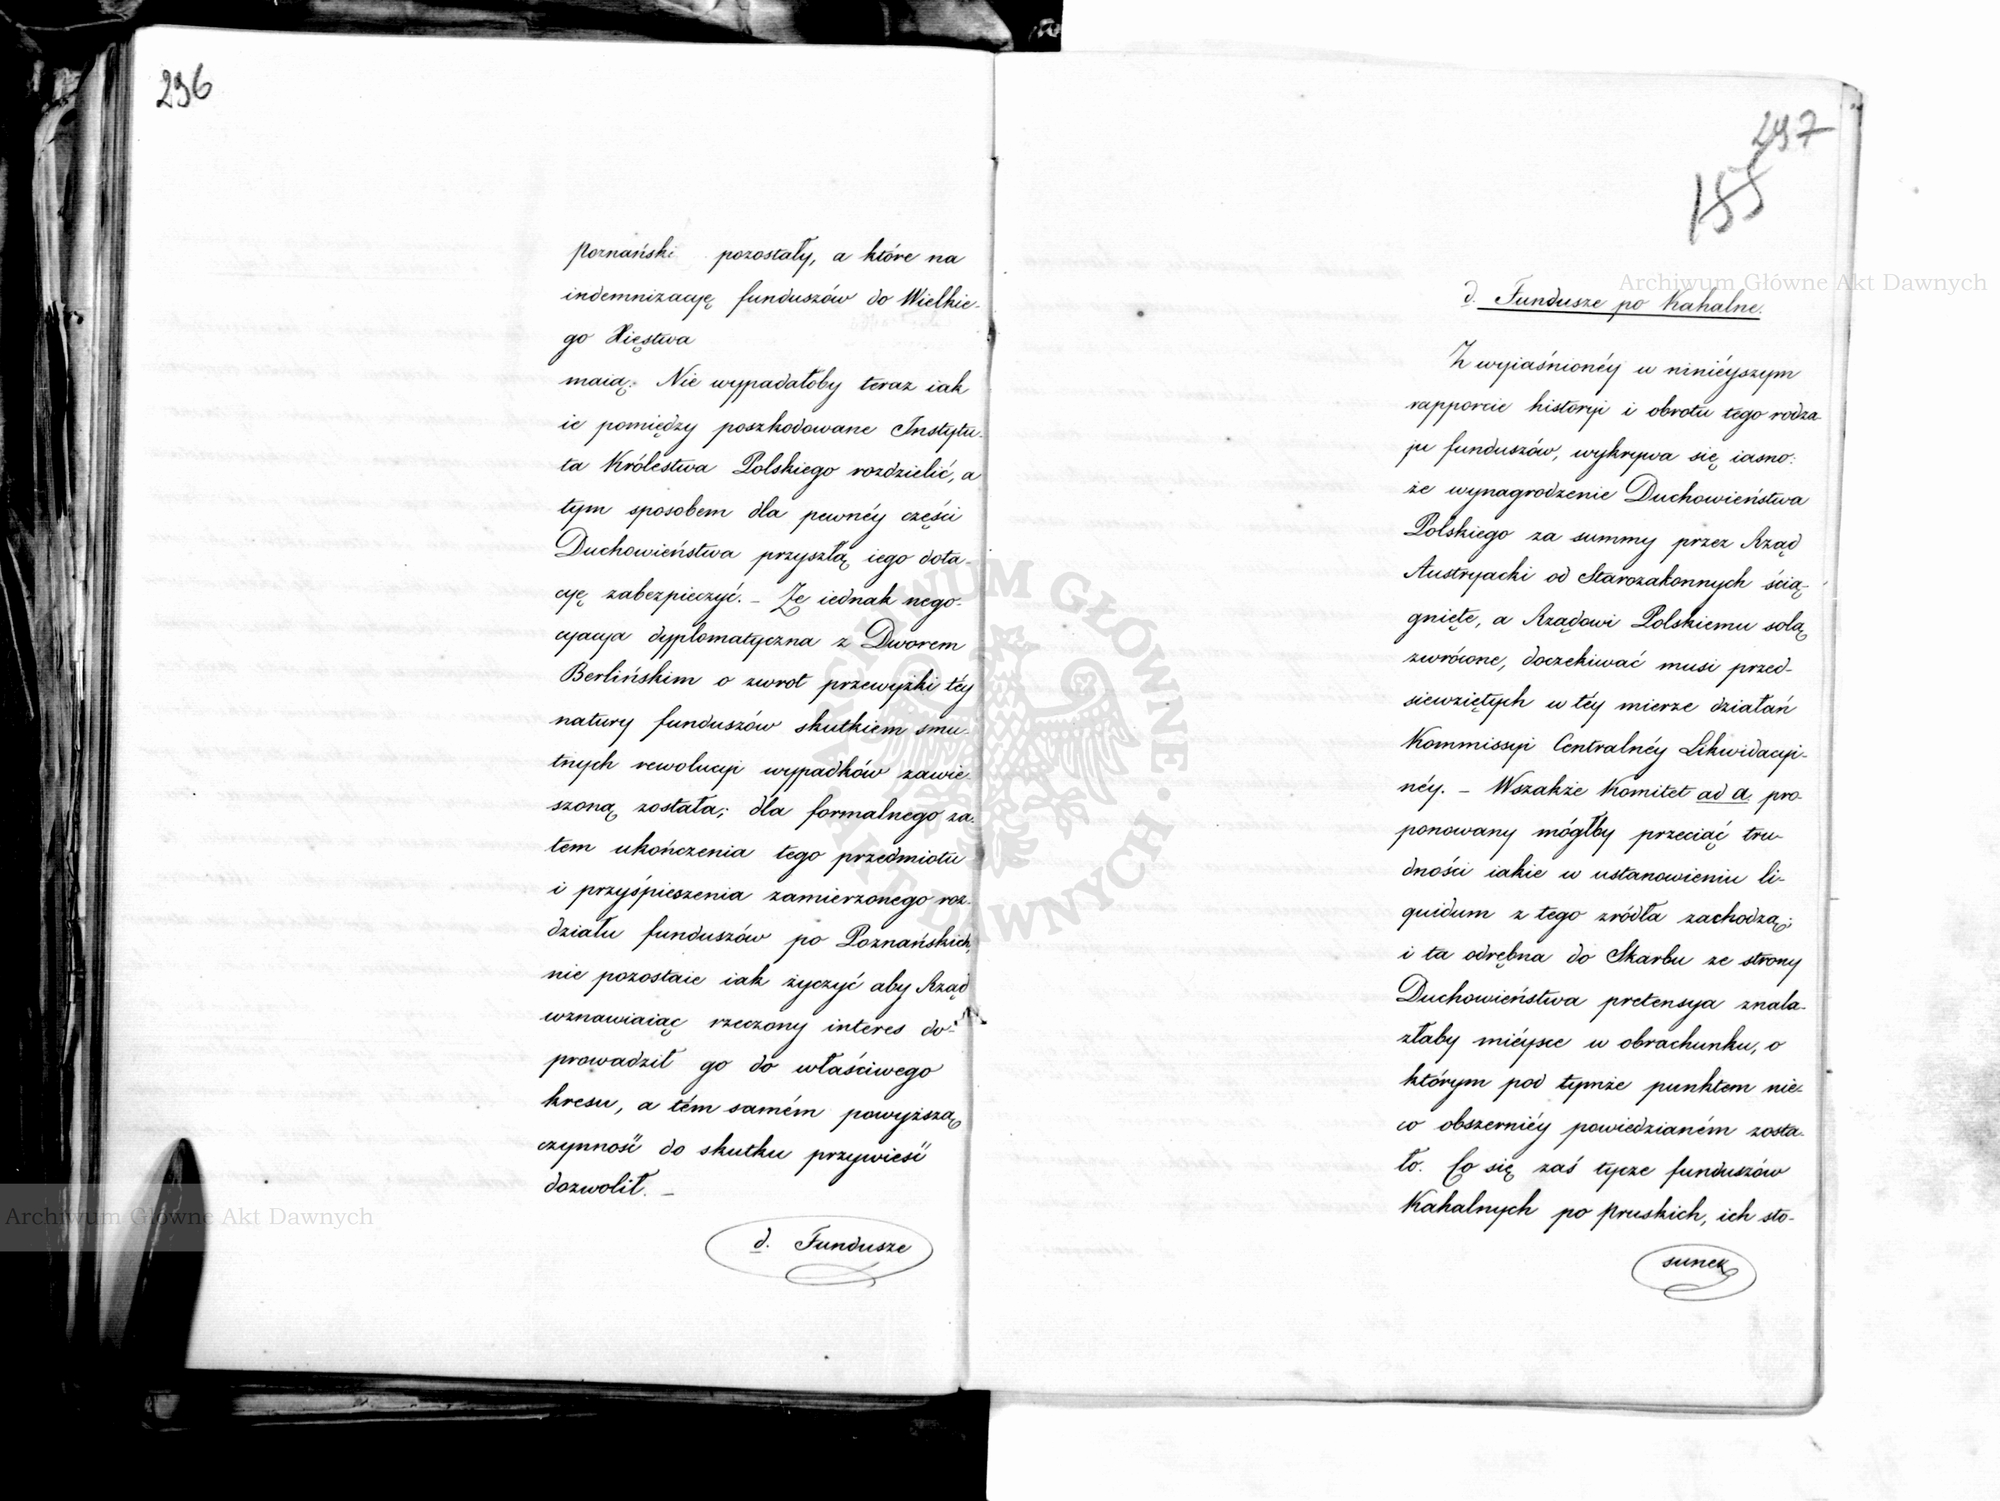 296
poznański pozostały, a które na
indemnizacyę funduszów do Wielkie-
go Xięstwa
maią. Nie wypadałoby teraz iak
ie pomiędzy poszkodowane Instytu-
ta Królestwa Polskiego rozdzielić, a
tym sposobem dla pewnéy części
Duchowieństwa przyszłą iego dota-
cyę zabezpieczyć. – Że iednak nego-
cyacya dyplomatyczna z Dworem
Berlińskim o zwrot przewyżki téy
natury funduszów skutkiem smu-
tnych rewolucyi wypadków zawie-
szoną została; dla formalnego za-
tem ukończenia tego przedmiotu
i przyśpieszenia zamierzonego roz-
działu funduszów po Poznańskich,
nie pozostaie iak życzyć aby Rząd
wznawiaiąc rzeczony interes do-
prowadził go do właściwego
kresu, a tém samém powyższą
czynność do skutku przywieść
dozwolił. –
d. Fundusze
297
155
d. Fundusze po Kahalne.
Z wyiaśnionéy w niniéyszym
rapporcie historyi i obrotu tego rodza-
ju funduszów, wykrywa się iasno:
że wynagrodzenie Duchowieństwa
Polskiego za summy przez Rząd
Austryacki od Starozakonnych ścią-
gnięte, a Rządowi Polskiemu solą
zwrócone, doczekiwać musi przed-
siewziętych w téy mierze działań
Kommissyi Centralnéy Likwidacyi-
néy. – Wszakże Komitet ad a. pro-
ponowany mógłby przeciąć tru-
dności iakie w ustanowieniu li-
quidum z tego zródła zachodzą;
i ta odrębna do Skarbu ze strony
Duchowieństwa pretensya znala-
złaby miéysce w obrachunku, o
którym pod tymże punktem nie-
co obszerniéy powiedzianém zosta-
ło. Co się zaś tycze funduszów
Kahalnych po pruskich, ich sto-
sunek
Archiwum Główne Akt Dawnych
Archiwum Główne Akt Dawnych
ARCHIWUM GŁÓWNE AKT DAWNYCH